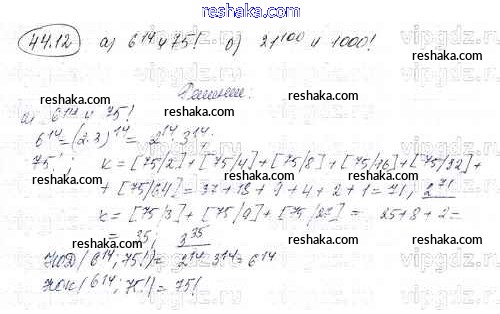 www.reshaka.com
44.12 а) 6^14 и 75! б) 21^100 и 1000!
Решение:
а) 6^14 и 75!
6^14 = (2·3)^14 = 2^14·3^14;
75!; k = [75/2] + [75/4] + [75/8] + [75/16] + [75/32] +
+ [75/64] = 37 + 18 + 9 + 4 + 2 + 1 = 71, 2^71
k = [75/3] + [75/9] + [75/27] = 25 + 8 + 2 =
= 35; 3^35
НОД (6^14; 75!) = 2^14·3^14 = 6^14
НОК (6^14; 75!) = 75!
reshaka.com
reshaka.com
reshaka.com
reshaka.com
reshaka.com
reshaka.com
reshaka.com
reshaka.com
reshaka.com
reshaka.com
reshaka.com
vipgdz.ru
vipgdz.ru
vipgdz.ru